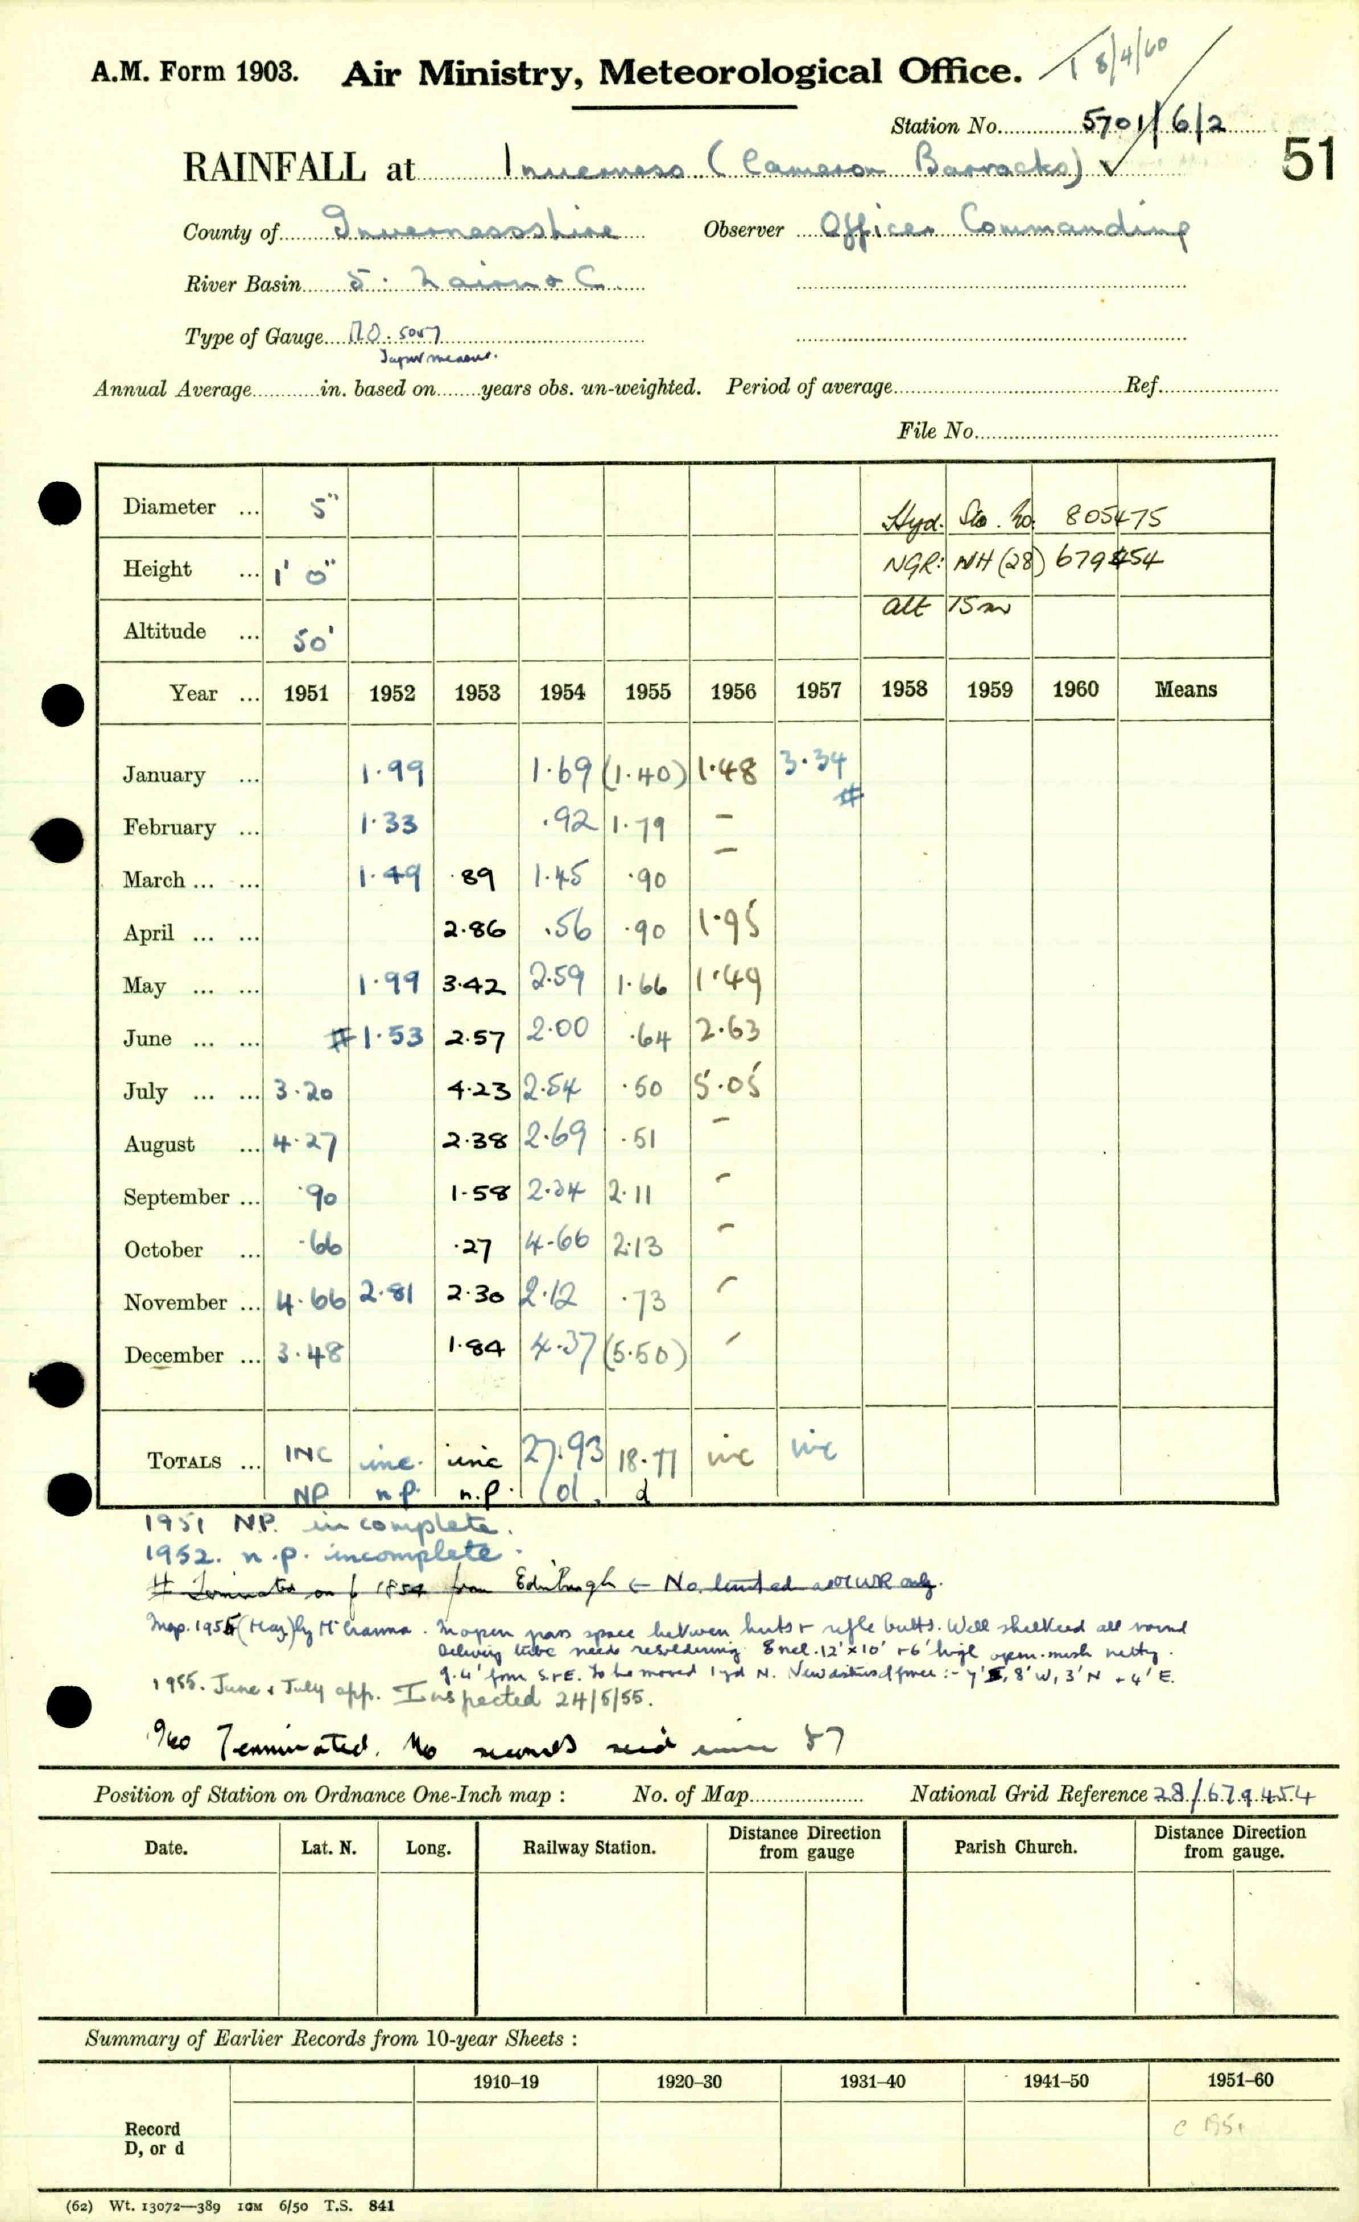 8/4/60
A.M. Form 1903. Air Ministry, Meteorological Office.
Station No. 5701/6/2
RAINFALL at Inverness (Cameron Barracks) ✓ 51
County of Invernessshire Observer Officer Commanding
River Basin 5. Nairn & C.
Type of Gauge M.O. 5047
Taper measure.
Annual Average in. based on years obs. un-weighted. Period of average Ref.
File No.
Diameter ... 5" Hyd. Sta. No. 805475
Height ... 1' 0" NGR: NH (28) 679454
Altitude ... 50' alt 15m
Year ... 1951 1952 1953 1954 1955 1956 1957 1958 1959 1960 Means
January ... 1.99 1.69 (1.40) 1.48 3.34 #
February ... 1.33 .92 1.79 –
March ... ... 1.49 .89 1.45 .90 –
April ... ... 2.86 .56 .90 1.95
May ... ... 1.99 3.42 2.59 1.66 1.49
June ... ... # 1.53 2.57 2.00 .64 2.63
July ... ... 3.20 4.23 2.54 .50 5.05
August ... 4.27 2.38 2.69 .51 –
September ... .90 1.58 2.34 2.11 –
October ... .66 .27 4.66 2.13 –
November ... 4.66 2.81 2.30 2.12 .73 –
December ... 3.48 1.84 4.37 (5.50) –
TOTALS ... INC inc. inc 27.93 18.77 inc inc
NP n.p. n.p. (d. d
1951 N.P. incomplete.
1952. n.p. incomplete.
# on f 1854 from Edinburgh ← No. only.
Insp. 1955 (May) by Mr . In open grass space between huts & rifle butts. Well sheltered all round
Delivery tube needs resoldering. Encl. 12' x 10' + 6' high open-mesh netting.
9.4' from S. & E. To be moved 1 yd N. New distances from :- 7' S, 8' W, 3' N + 4' E.
1955. June & July app. Inspected 24/5/55.
1960 Terminated. No records recd since 57
Position of Station on Ordnance One-Inch map : No. of Map National Grid Reference 28/679454
Date. Lat. N. Long. Railway Station. Distance Direction from gauge Parish Church. Distance Direction from gauge.
Summary of Earlier Records from 10-year Sheets :
1910–19 1920–30 1931–40 1941–50 1951–60
Record
D, or d
c 1951
(62) Wt. 13072—389 10M 6/50 T.S. 841